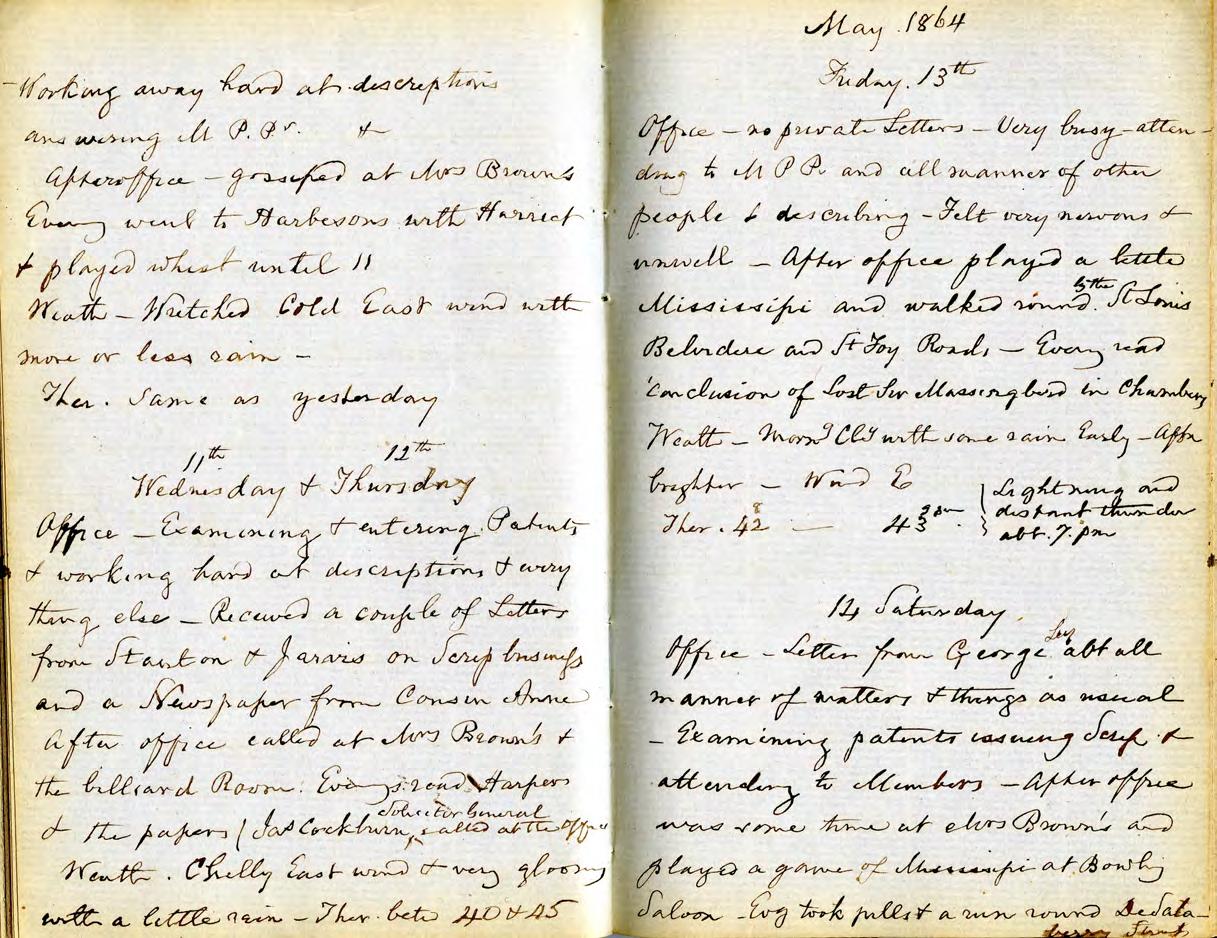 Working away hard at descriptions
answering M P. Ps. &
After office – gossiped at Mrs Brown's
Eveng went to Harbesons with Harriet
& played whist until 11
Weath – Wretched Cold East wind with
more or less rain –
Ther. Same as yesterday
11th 12th
Wednesday & Thursday
Office – Examining & entering Patents
& working hard at descriptions & every
thing else – Received a couple of Letters
from Stanton & Jarvis on Scrip business
and a Newspaper from Cousin Anne
After office called at Mrs Brown's &
the billiard Room. Evengs read Harpers
Solicitor General
& the papers (Jas Cockburn, called at the Office
Weath. Chilly East wind & very gloomy
with a little rain – Ther. betn 40 & 45
May. 1864
Friday. 13th
Office – no private Letters – Very busy – atten-
ding to M P Ps and all manner of other
people & describing – Felt very nervous &
unwell – After office played a little
Mississipi and walked round the St Louis
Belvidere and St Foy Roads – Eveng read
conclusion of Lost Sir Massingberd in Chambers
Weath – Morng Cldy with some rain Early – Aftn
brighter – Wind E
Ther. 42 8 — 43 3 pm. Lightning and
distant thunder
abt. 7. pm
14 Saturday
Office – Letter from George abt all
manner of matters & things as usual
– Examining patents issuing Scrip &
attending to Members – After office
was some time at Mrs Brown's and
played a game of Mississipi at Bowlg
Saloon – Evg took pills & a run round De Sala-
berry Street